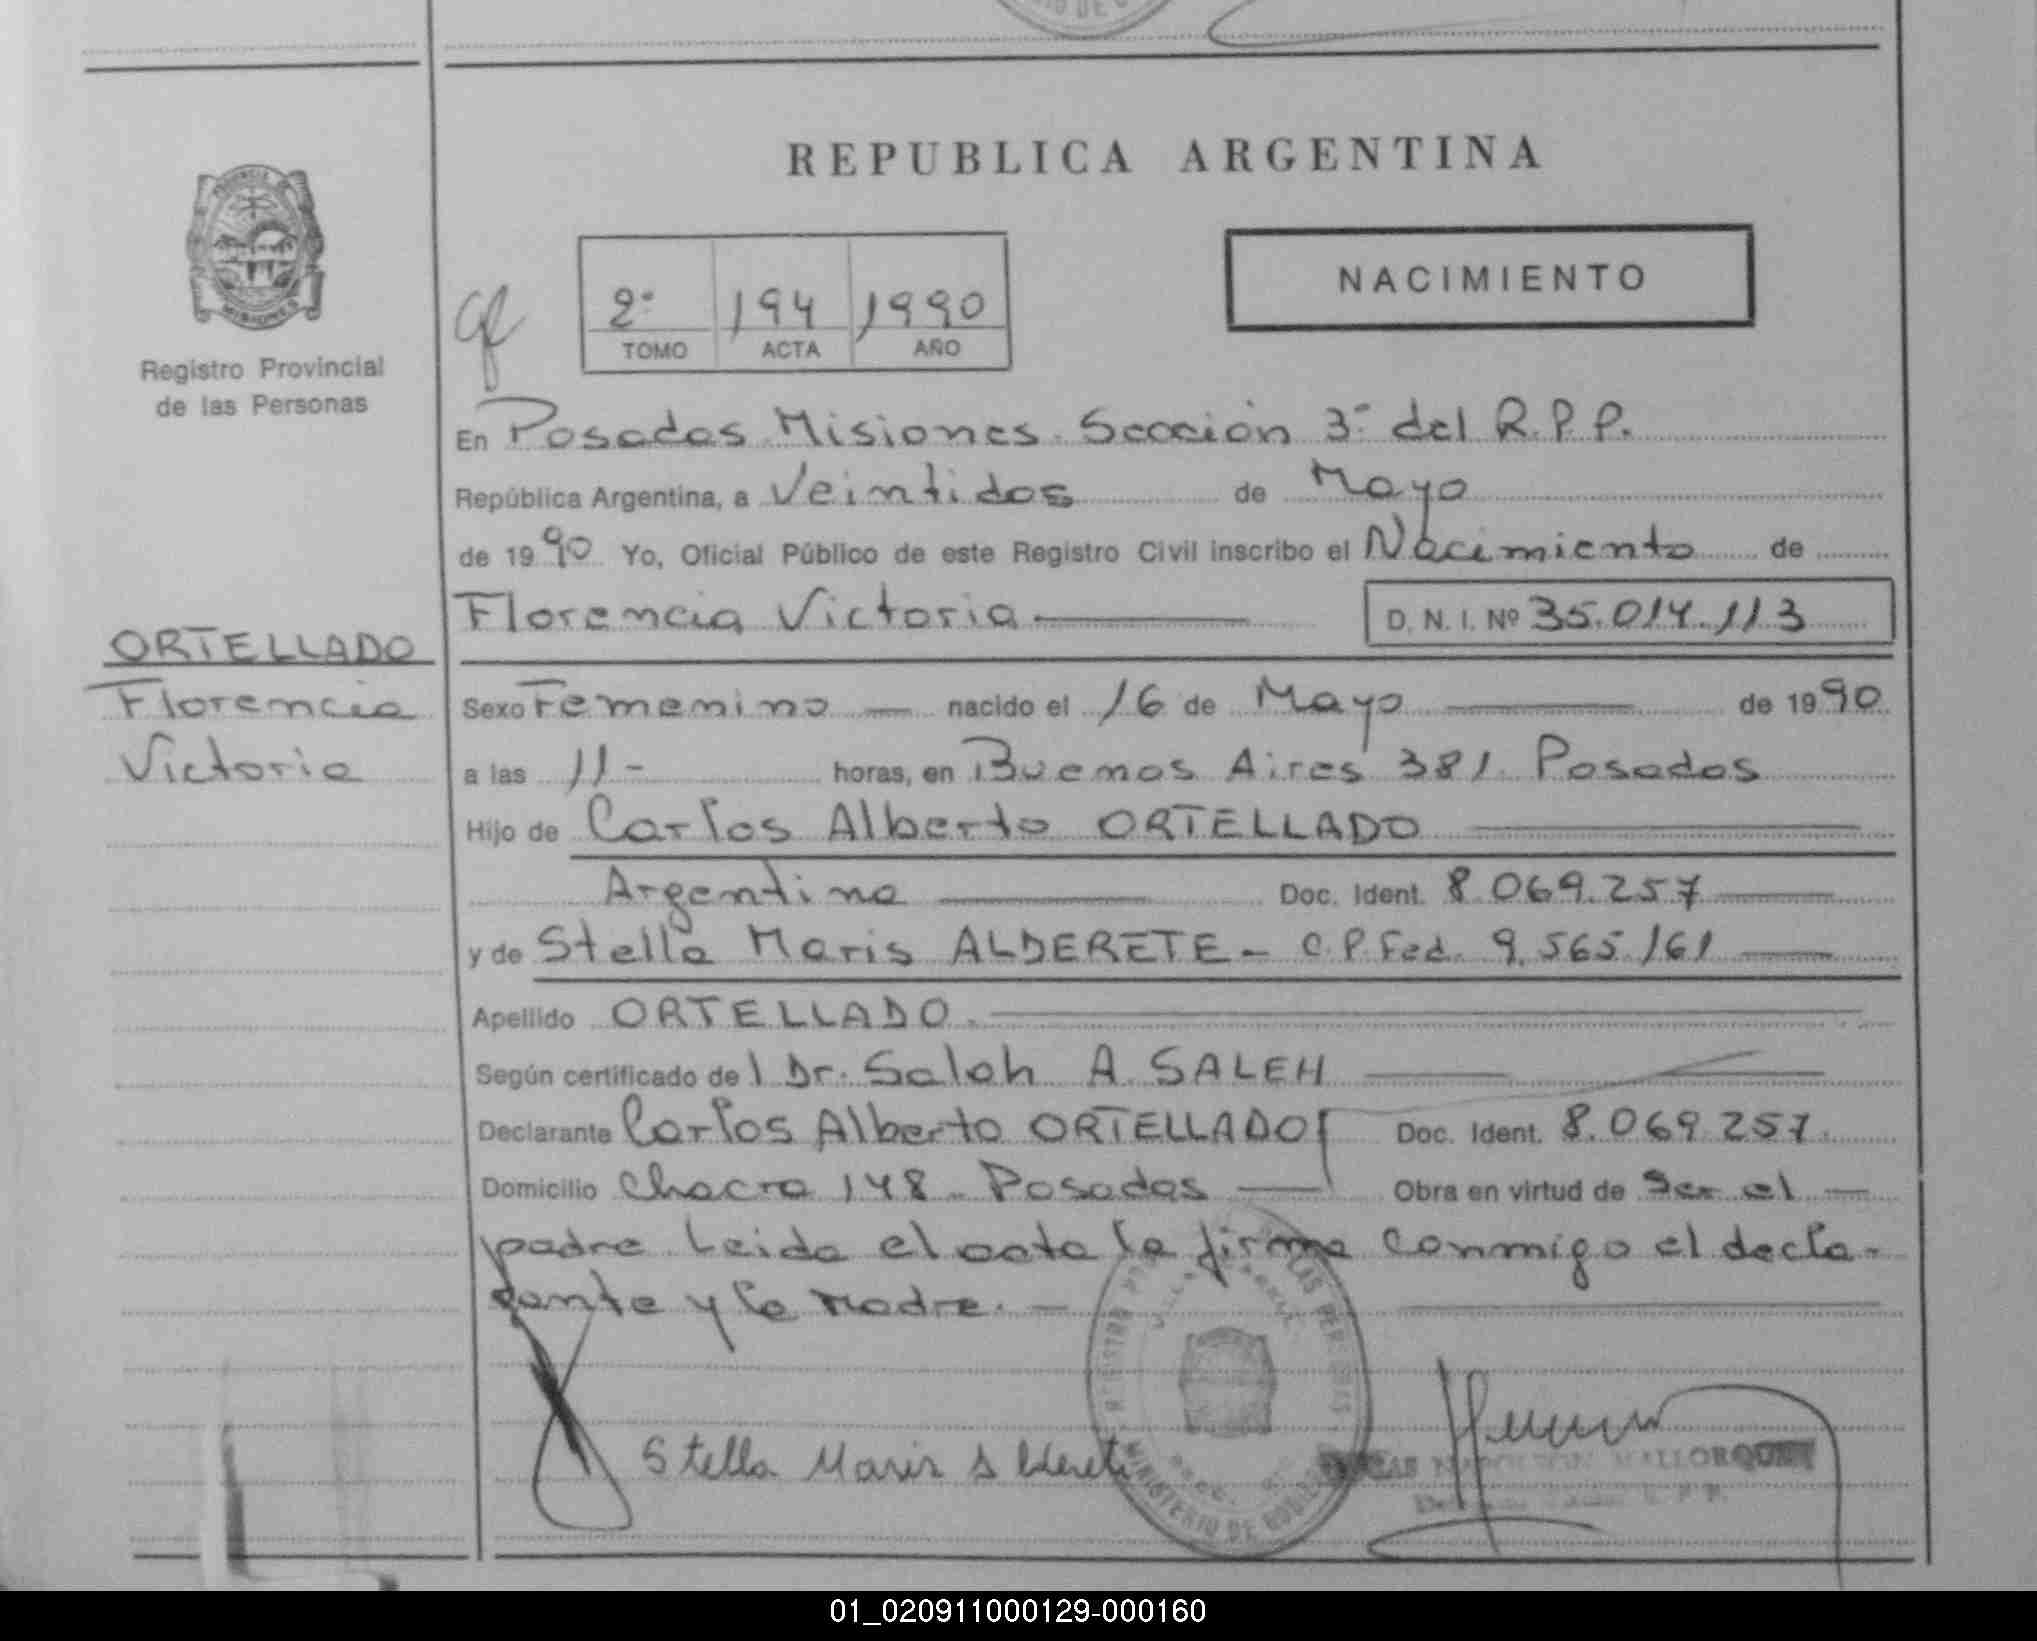 REPUBLICA ARGENTINA
Registro Provincial
de las Personas
2º 194 1990
TOMO ACTA AÑO
NACIMIENTO
En Posadas Misiones Sección 3ª del R.P.P.
República Argentina, a Veintidos de Mayo
de 1990 Yo, Oficial Público de este Registro Civil inscribo el Nacimiento de
Florencia Victoria D. N. I. Nº 35.014.113
ORTELLADO
Florencia
Victoria
Sexo Femenino nacido el 16 de Mayo de 1990
a las 11- horas, en Buenos Aires 381 Posadas
Hijo de Carlos Alberto ORTELLADO
Argentino Doc. Ident. 8.069.257
y de Stella Maris ALDERETE - C.P.Fed. 9.565.161
Apellido ORTELLADO.
Según certificado del Dr. Saleh A. SALEH
Declarante Carlos Alberto ORTELLADO Doc. Ident. 8.069.257.
Domicilio Chacra 148 - Posadas Obra en virtud de Ser el
padre Leida el acta la firma conmigo el decla-
rante y la Madre.-
Stella Maris Alderete
NAPOLEON MALLORQUIN
MINISTERIO DE
01_020911000129-000160